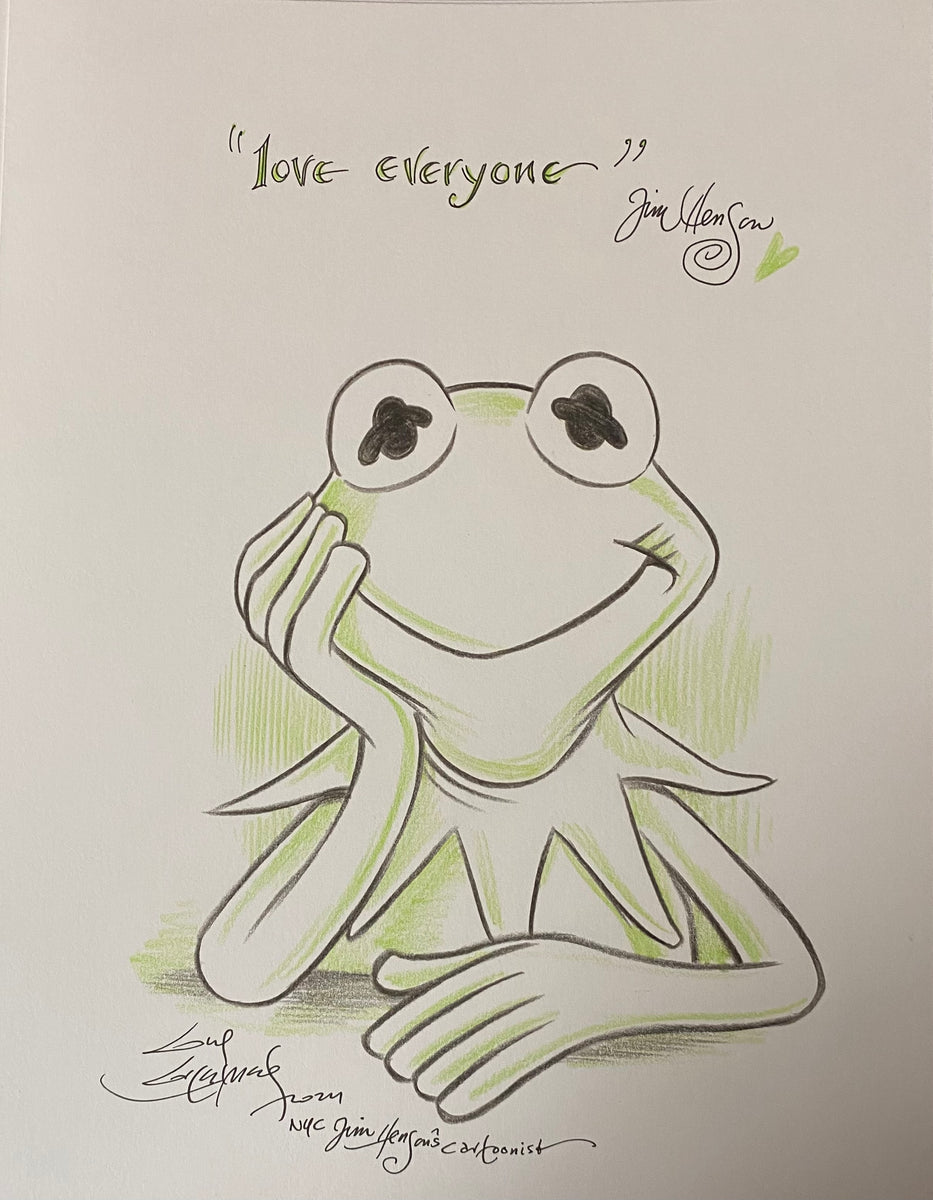 "love everyone"
Jim Henson
2021
NYC Jim Henson's cartoonist